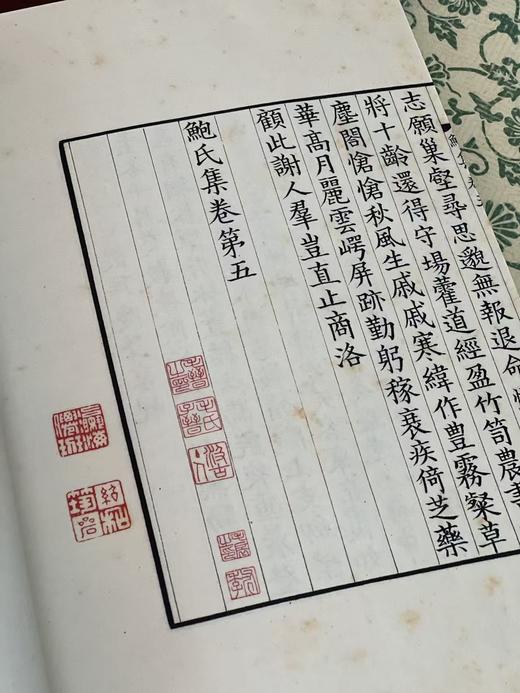 志願巢壑尋思邈無報退命
將十齡還得守場藿道經盈竹笥農書
塵閣愴愴秋風生戚戚寒緯作豊霧粲草
華高月麗雲崿屏跡勤躬稼衰疾倚芝藥
顧此謝人羣豈直止商洛
鮑氏集卷第五